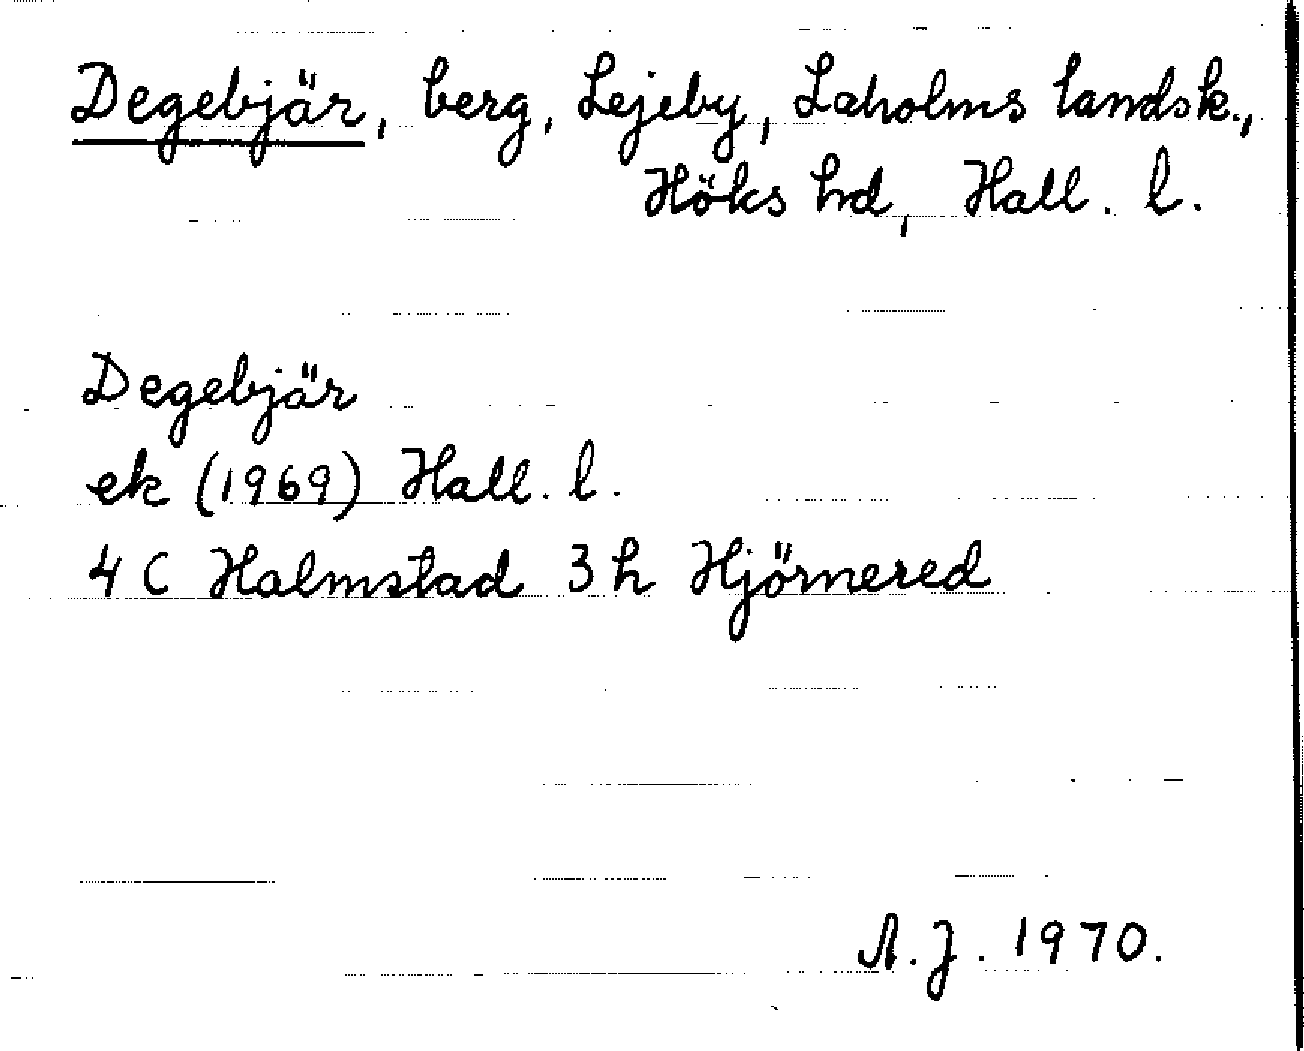 Degebjär, berg, Lejeby, Laholms landsk.,
Höks hd, Hall. l.
Degebjär
ek (1969) Hall. l.
4 C Halmstad 3 h Hjörnered
A. J. 1970.